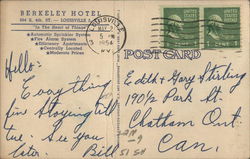 BERKELEY HOTEL
664 S. 4th ST. - LOUISVILLE
"In The Heart of Things"
Automatic Sprinkler System
Fire Alarm System
Efficiency Apartments
Centrally Located
Moderate Prices
LOUISVILLE
5 PM
1954
KY.
POST CARD
Hello:
Everything
fine staying till
tue. See you
later Bill
Edith & Gary Stirling
190 1/2 Park St.
Chatham Ont.
Can.